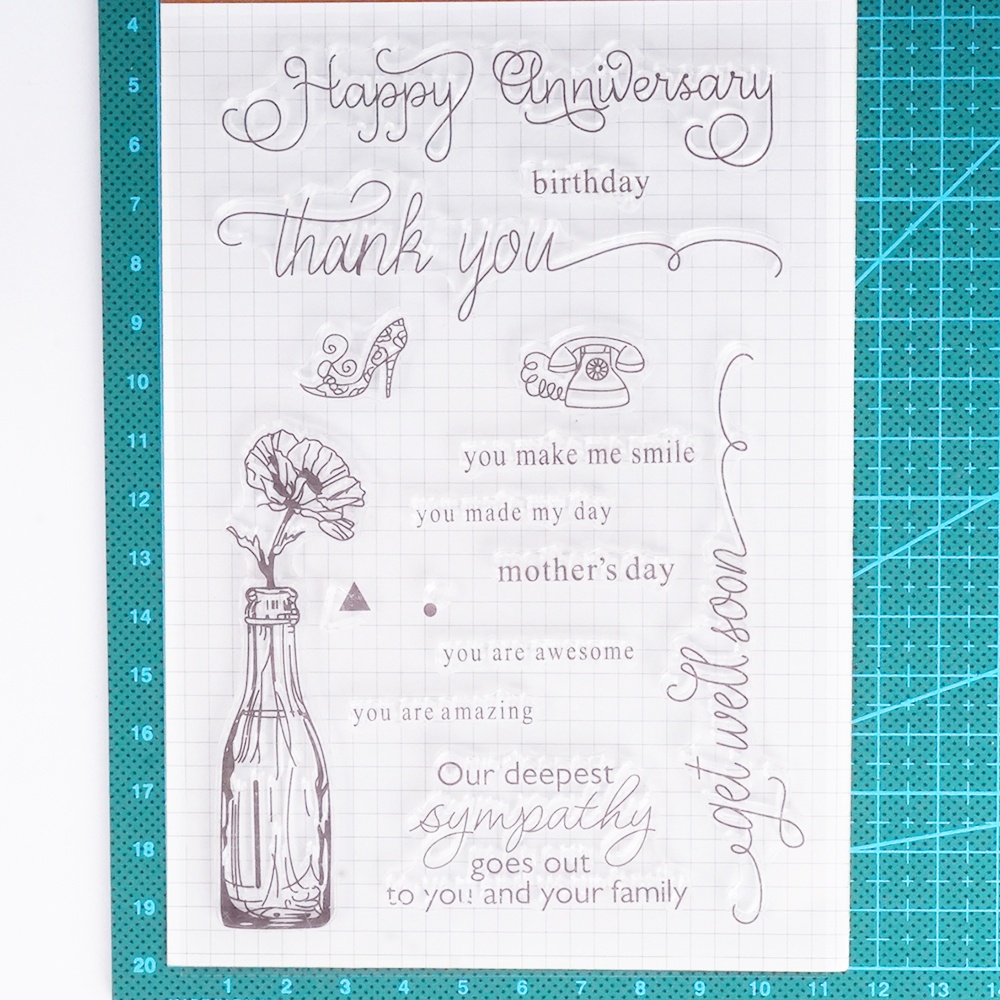 Happy Anniversary
birthday
thank you
you make me smile
you made my day
mother's day
you are awesome
you are amazing
get well soon
Our deepest
sympathy
goes out
to you and your family
4
5
6
7
8
9
10
11
12
13
14
15
16
17
18
19
20
1 2 3 4 5 6 7 8 9 10 11 12 13